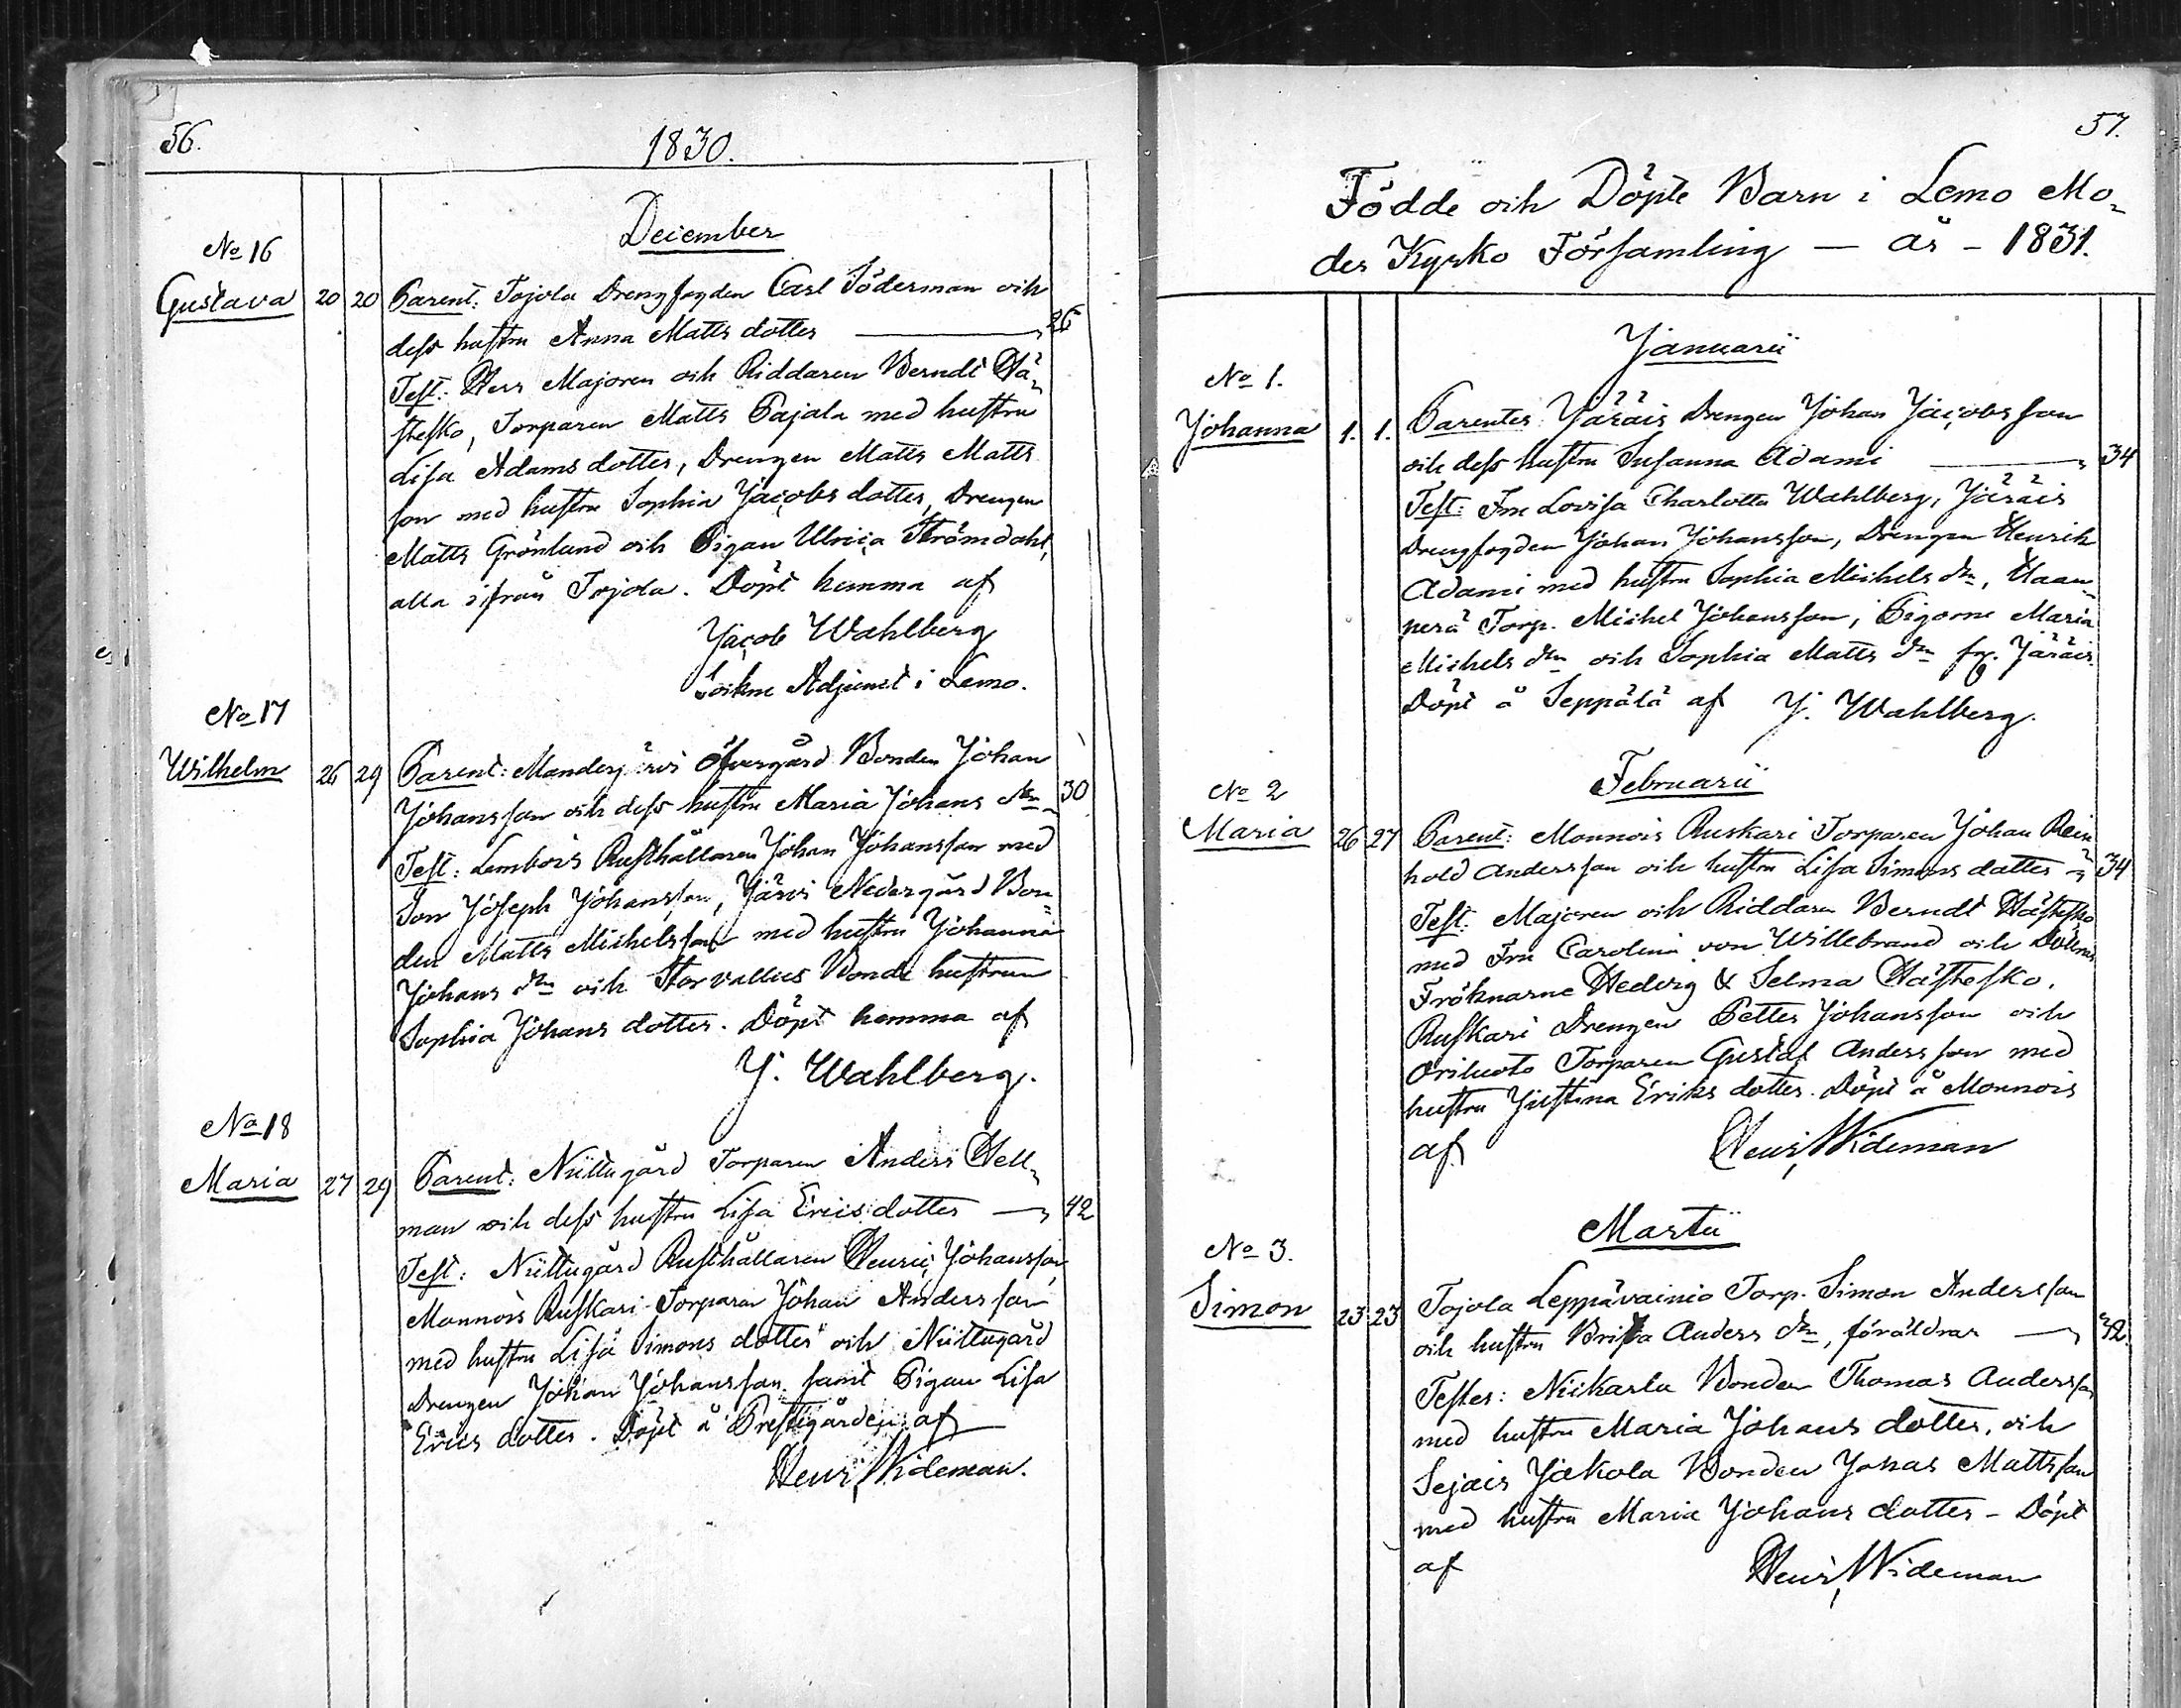 56.
1830.
December
No 16
Gustava 20 20 Parent: Tojola Drengfogden Carl Söderman och
dess hustru Anna Matts dotter — 26
Test: Herr Majoren och Riddaren Berndt Hä=
stesko, Torparen Matts Pajala med hustru
Lisa Adams dotter, Drengen Matts Matts
son med hustru Sophia Jacobs dotter, Drengen
Matts Grönlund och Pigan Ulrica Strömdahl,
alla ifrån Tojola. Döpt hemma af
Jacob Wahlberg
Sokne Adjunct i Lemo.
No 17
Wilhelm 26 29 Parent: Manderjärvi Öfvergård Bonden Johan
Johansson och dess hustru Maria Johans dr 30
Test: Lembois Rusthållaren Johan Johansson med
Son Joseph Johansson, Järvi Nedergård Bon=
den Matts Michelsson med hustru Johanna
Johans dr och Storvallies Bonde hustrun
Sophia Johans dotter. Döpt hemma af
J. Wahlberg.
No 18
Maria 27 29 Parent: Niittugård Torparen Anders Hell=
man och dess hustru Lisa Erics dotter — 42
Test: Niittugård Rusthållaren Henric Johansson,
Monnois Ruskari Torparen Johan Andersson
med hustru Lisa Simons dotter och Niittugård
Drengen Johan Johansson samt Pigan Lisa
Erics dotter. Döpt å Prestgården af
Henr. Wideman.
57.
Födde och Döpte Barn i Lemo Mo=
der Kyrko Församling — år - 1831.
Januarii
No 1.
Johanna 1. 1. Parentes Järäis Drengen Johan Jacobsson
och dess hustru Susanna Adami — 34
Test: Fru Lovisa Charlotta Wahlberg, Järäis
Drengfogden Johan Johansson, Drengen Henrik
Adami med hustru Sophia Michels dr, Haan=
perä Torp. Michel Johansson, Pigorne Maria
Michels dr och Sophia Matts dr fr. Järäis.
Döpt å Seppälä af J. Wahlberg.
Februarii
No 2
Maria 26 27 Parent: Monnois Ruskari Torparen Johan Rein
hold Andersson och hustru Lisa Simons dotter — 34
Test: Majoren och Riddaren Berndt Hästesko
med Fru Carolina von Willebrand och Döttrar
Fröknarne Hedvig & Selma Hästesko.
Ruskari Drengen Petter Johansson och
Oriluoto Torparen Gustaf Andersson med
hustru Justina Eriks dotter. Döpt å Monnois
af Henr. Wideman
Martii
No 3.
Simon 23 23 Tojola Leppävainio Torp. Simon Andersson
och hustru Brita Anders dr, föräldrar — 42.
Testes: Niikarla Bonden Thomas Andersson
med hustru Maria Johans dotter, och
Sejais Jakola Bonden Jonas Mattsson
med hustru Maria Johans dotter - Döpt
af Henr. Wideman